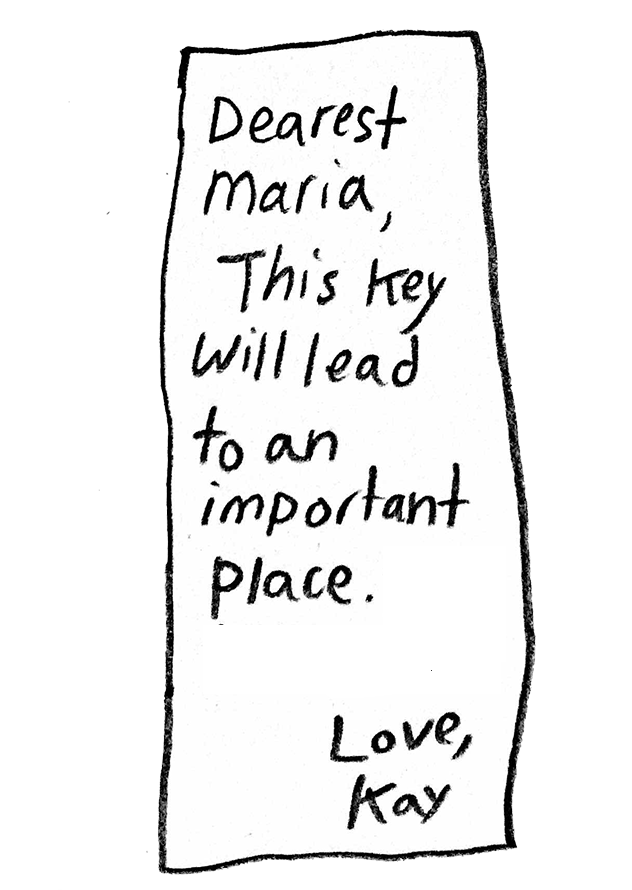 Dearest
Maria,
This key
will lead
to an
important
place.
Love,
Kay